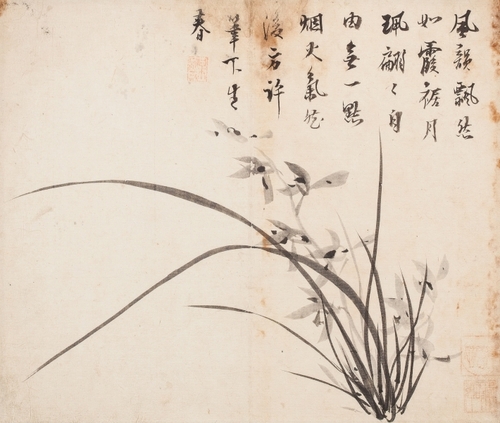 風韻飄然
如霞裾月
珮翩〻自
由無一點
烟火氣然
後方許
筆下生
春